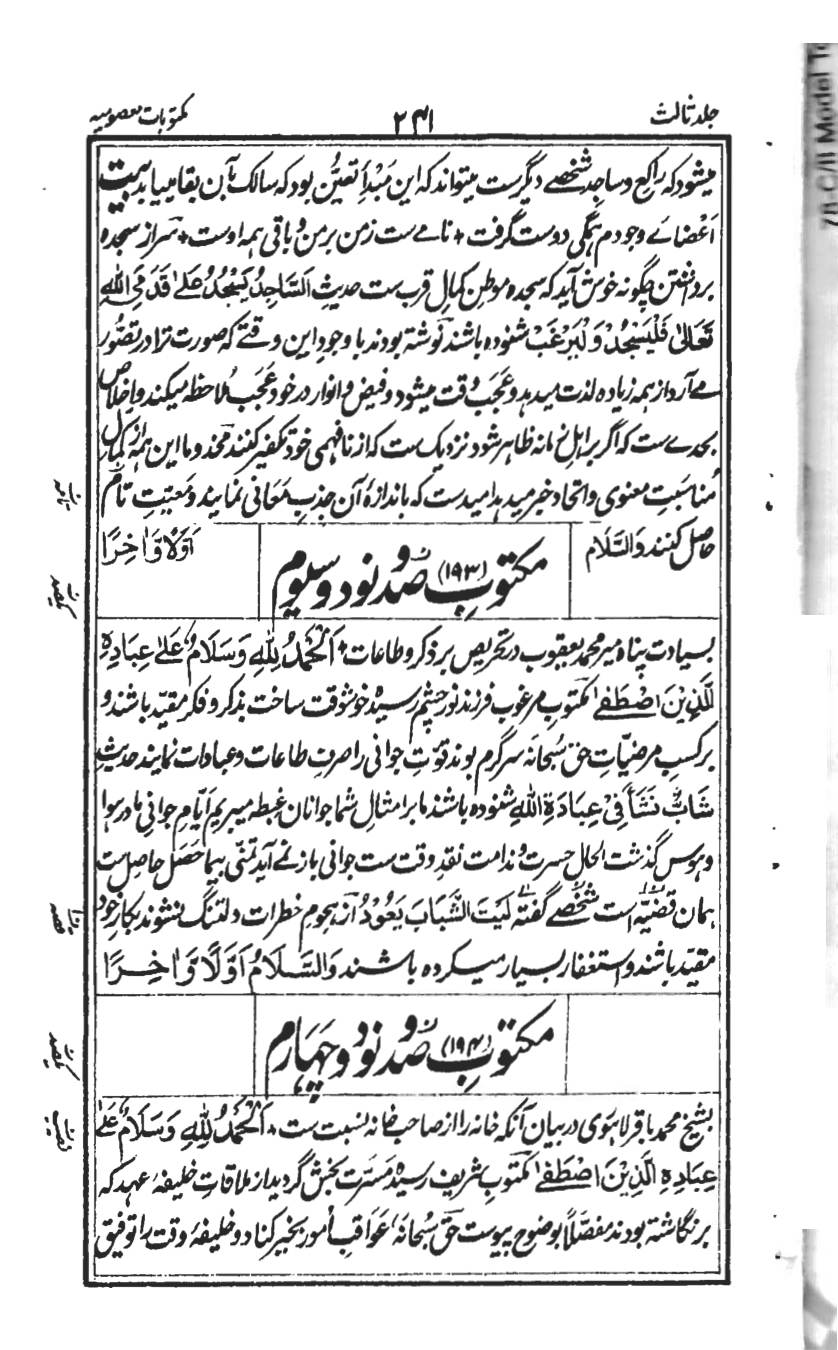 جلد ثالث
۲۴۱
مکتوبات معصومیه
میشود که راکع و ساجد شخصے دیگرست میتواند که این مَبْدأِ تعیُّن بود که سالک بآن بقا مییابد بیت
اَعْضائے وجودم ہمگی دوست گرفت ٭ نامے ست زمن برمن و باقی ہمہ اوست ٭ سراز سجدہ
برداشتن چگونه خوش آید که سجدہ موطن کمال قرب ست حدیث اَلسَّاجِدُ یَسْجُدُ عَلیٰ قَدَمَیِ اللّٰهِ
تَعَالیٰ فَلْیَسْجُدْ وَلْیَرْغَبْ شنودہ باشند نوشته بودند با وجود این وقتے که صورت ترا در تصوُّر
مے آرد از ہمہ زیادہ لذت میدہد و عجب رقت میشود و فیض و انوار در خود عجب مُلاحظہ میکند و اخلاص
بحدے ست که اگر بر اہل زمانہ ظاہر شود نزدیک ست که از نافہمی خود تکفیر کنند مخدوما این ہمہ از کمال
مُناسَبتِ معنوی و اتحاد خبر میدہد امیدست که باندازۂ آن جذبِ معانی نمایند و معیّتِ تامّ
حاصل کنند وَالسَّلَام
اَوَّلًا وَّاٰخِرًا
مکتوبِ (۱۹۳) صَد و نود و سیوم
بسیادت پناہ میر محمد یعقوب در تحریص بر ذکر و طاعات ٭ اَلْحَمْدُ لِلّٰهِ وَسَلَامٌ عَلیٰ عِبَادِهِ
الَّذِیْنَ اصْطَفےٰ مکتوبِ مرغوب فرزند نورِ چشم رسیدہ خوشوقت ساخت بذکر و فکر مقیّد باشند و
بر کسبِ مرضیّاتِ حق سُبحانہ سرگرم بوند قوّتِ جوانی را صرفِ طاعات و عبادات نمایند حدیثِ
شَابٌّ نَشَأَ فِیْ عِبَادَةِ اللّٰهِ شنودہ باشند ما بر امثال شما جوانان غبطہ میبریم اَیّامِ جوانیِ ما در ہوا
و ہوس گذشت الحال حسرت و ندامت نقدِ وقت ست جوانی باز نمے آید تمنّی بیما حَصَل حاصل ست
ہمان قضیّہ است شخصے گفته لَیْتَ الشَّبَابَ یَعُوْدُ از ہجومِ خطرات دلتنگ نشوند بکارِ خود
مقیّد باشند و استغفار بسیار میکردہ باشند وَالسَّلَامُ اَوَّلًا وَّاٰخِرًا
مکتوبِ (۱۹۴) صَد و نود و چہارم
بشیخ محمد باقر لاہوی در بیان آنکه خانہ را از صاحبِ خانہ نسبت ست ٭ اَلْحَمْدُ لِلّٰهِ وَسَلَامٌ عَلیٰ
عِبَادِهِ الَّذِیْنَ اصْطَفےٰ مکتوبِ شریف رسیدہ مَسَرَّت بخش گردید از ملاقاتِ خلیفۂ عہد که
بر نگاشته بودند مفصَّلاً بوضوح پیوست حق سُبحانہ عَوَاقِبِ اُمور بخیر کناد و خلیفۂ وقت را توفیق
78-C/II Model To